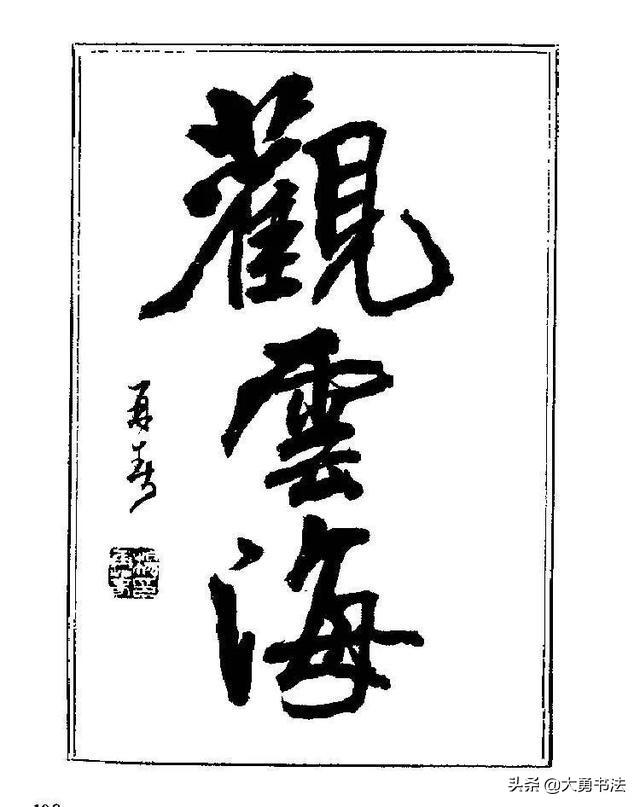 觀雲海
再春
头条 @大勇书法